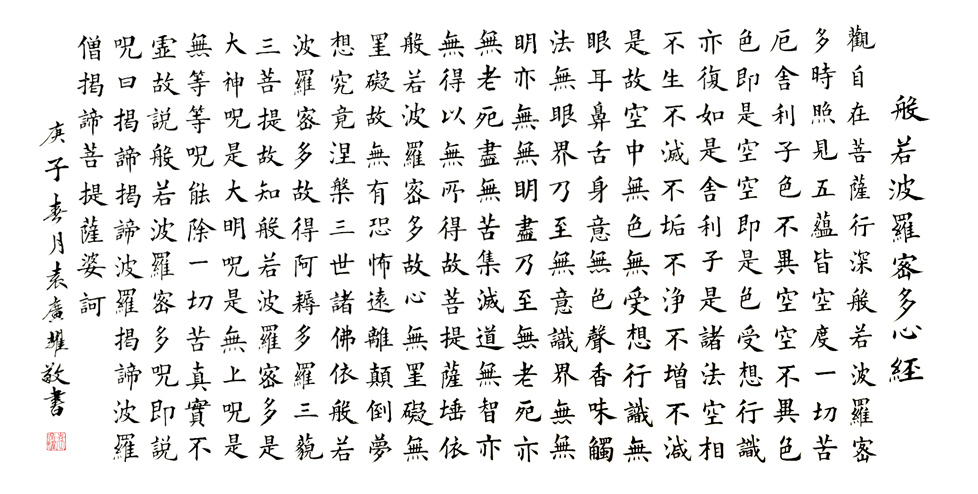 般若波羅密多心经
觀自在菩薩行深般若波羅密
多時照見五蘊皆空度一切苦
厄舍利子色不異空空不異色
色即是空空即是色受想行識
亦復如是舍利子是諸法空相
不生不滅不垢不净不增不減
是故空中無色無受想行識無
眼耳鼻舌身意無色聲香味觸
法無眼界乃至無意識界無無
明亦無無明盡乃至無老死亦
無老死盡無苦集滅道無智亦
無得以無所得故菩提薩埵依
般若波羅密多故心無罣礙無
罣礙故無有恐怖遠離顛倒夢
想究竟涅槃三世諸佛依般若
波羅密多故得阿耨多羅三藐
三菩提故知般若波羅密多是
大神呪是大明呪是無上呪是
無等等呪能除一切苦真實不
虛故説般若波羅密多呪即説
呪曰揭諦揭諦波羅揭諦波羅
僧揭諦菩提薩婆訶
庚子春月袁廣敬書